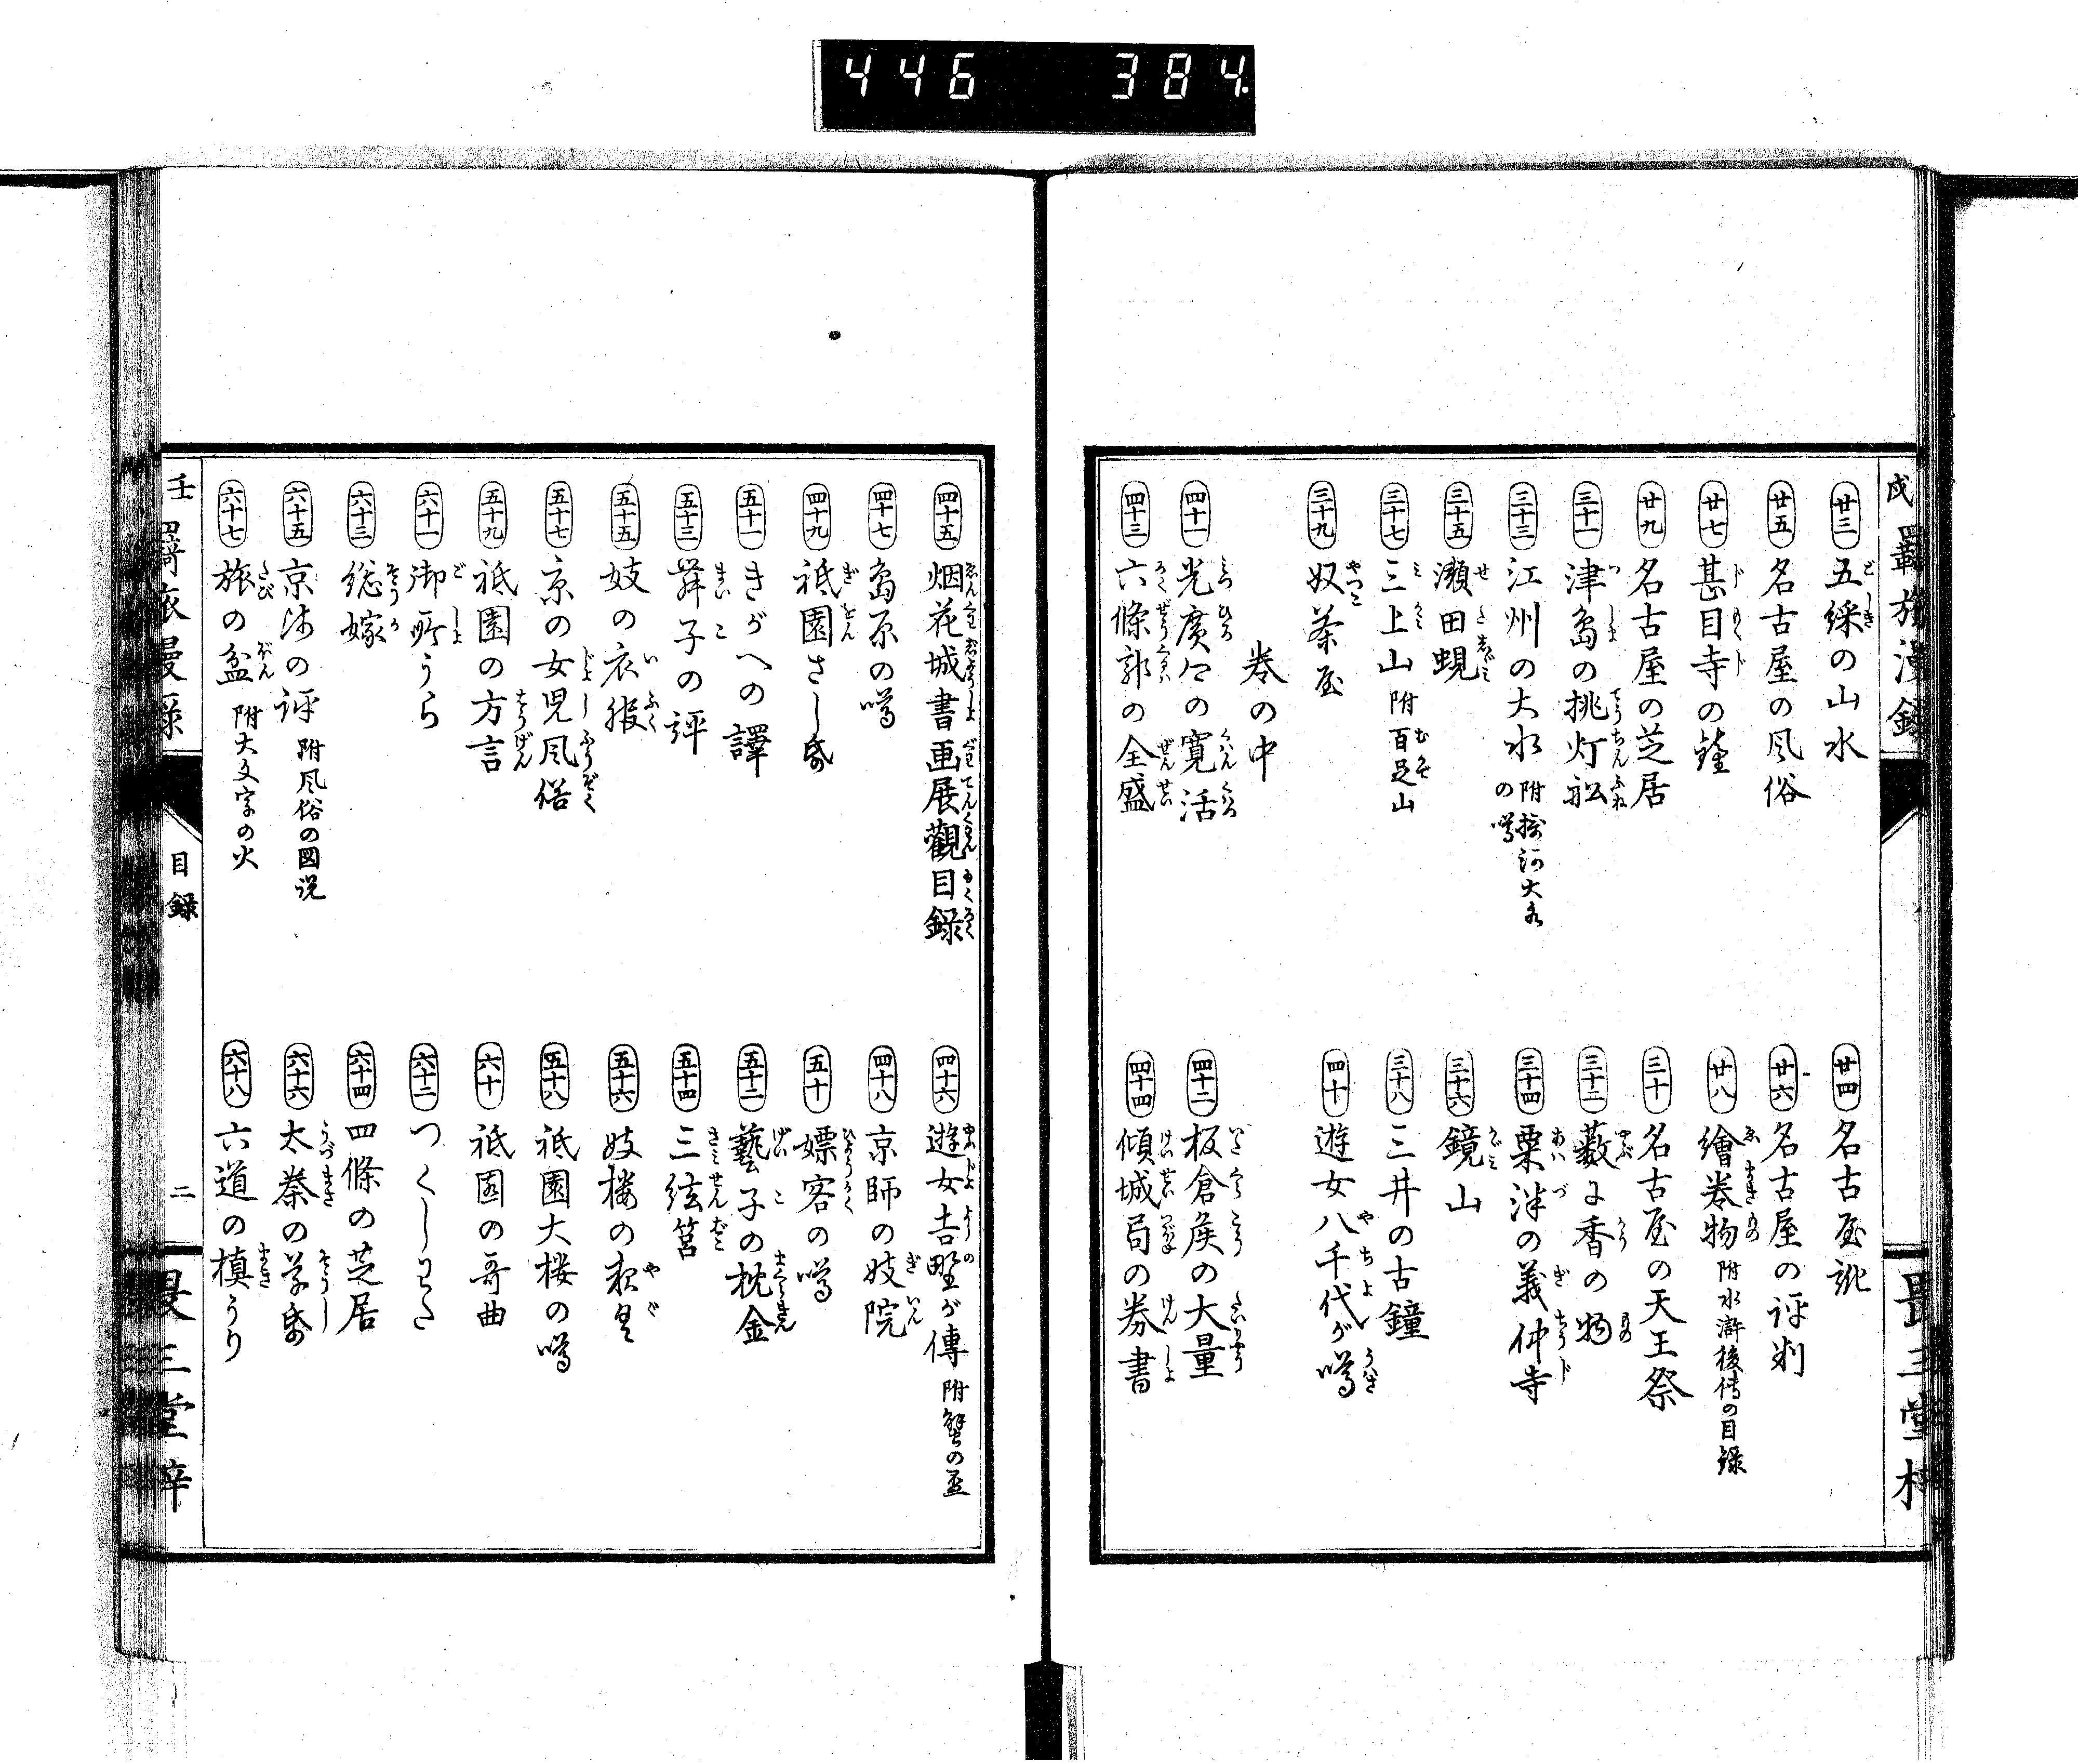 446 384.
廿三 五綵の山水
廿四 名古屋訛
廿五 名古屋の風俗
廿六 名古屋の評判
廿七 甚目寺の鐘
廿八 繪巻物 附水滸後傳の目録
廿九 名古屋の芝居
三十 名古屋の天王祭
三十一 津島の挑灯舩
三十二 藪に香の物
三十三 江州の大水 附摂河大水の噂
三十四 粟津の義仲寺
三十五 瀬田蜆
三十六 鏡山
三十七 三上山 附百足山
三十八 三井の古鐘
三十九 奴茶屋
四十 遊女八千代が噂
巻の中
四十一 光廣公の寛活
四十二 板倉侯の大量
四十三 六條郭の全盛
四十四 傾城局の券書
四十五 烟花城書画展觀目録
四十六 遊女吉野が傳 附蟹の盃
四十七 島原の噂
四十八 京師の妓院
四十九 祇園さし紙
五十 嫖客の噂
五十一 きがへの譯
五十二 藝子の枕金
五十三 舞子の評
五十四 三弦筥
五十五 妓の衣服
五十六 妓楼の夜具
五十七 京の女児風俗
五十八 祇園大楼の噂
五十九 祇園の方言
六十 祇園の哥曲
六十一 御所うら
六十二 つくしわた
六十三 総嫁
六十四 四條の芝居
六十五 京師の評 附風俗の図説
六十六 太秦の草紙
六十七 旅の盆 附大文字の火
六十八 六道の槙うり
目録 二